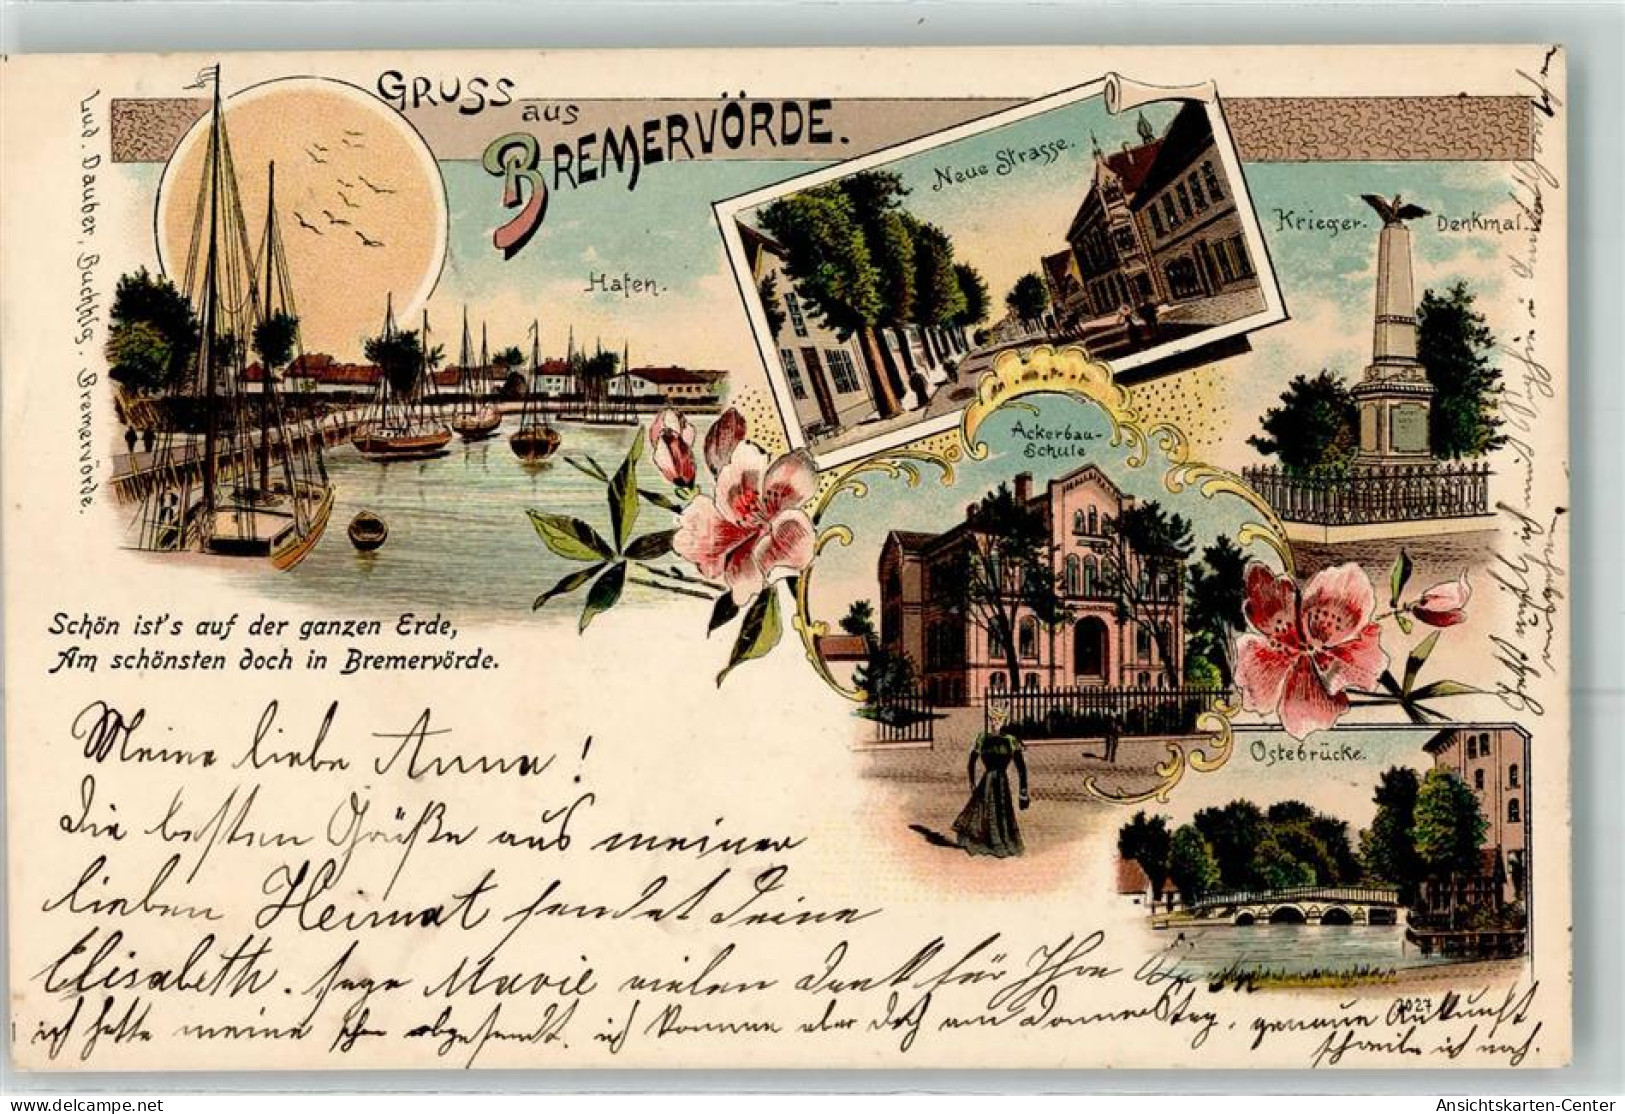 GRUSS aus
BREMERVÖRDE.
Hafen.
Neue Strasse.
Krieger. Denkmal.
Ackerbau-
Schule
Ostebrücke.
Lud. Dauber, Buchhlg. Bremervörde.
Schön ist's auf der ganzen Erde,
Am schönsten doch in Bremervörde.
Meine liebe Anna!
Die besten Grüße aus meiner
lieben Heimat sendet Deine
Elisabeth. Sage Marie vielen Dank für Ihre
ich hatte meine schon abgesandt. ich komme aber doch am Donnerstag, genaue Ankunft
schreibe ich noch.
7027
Ansichtskarten-Center
www.delcampe.net